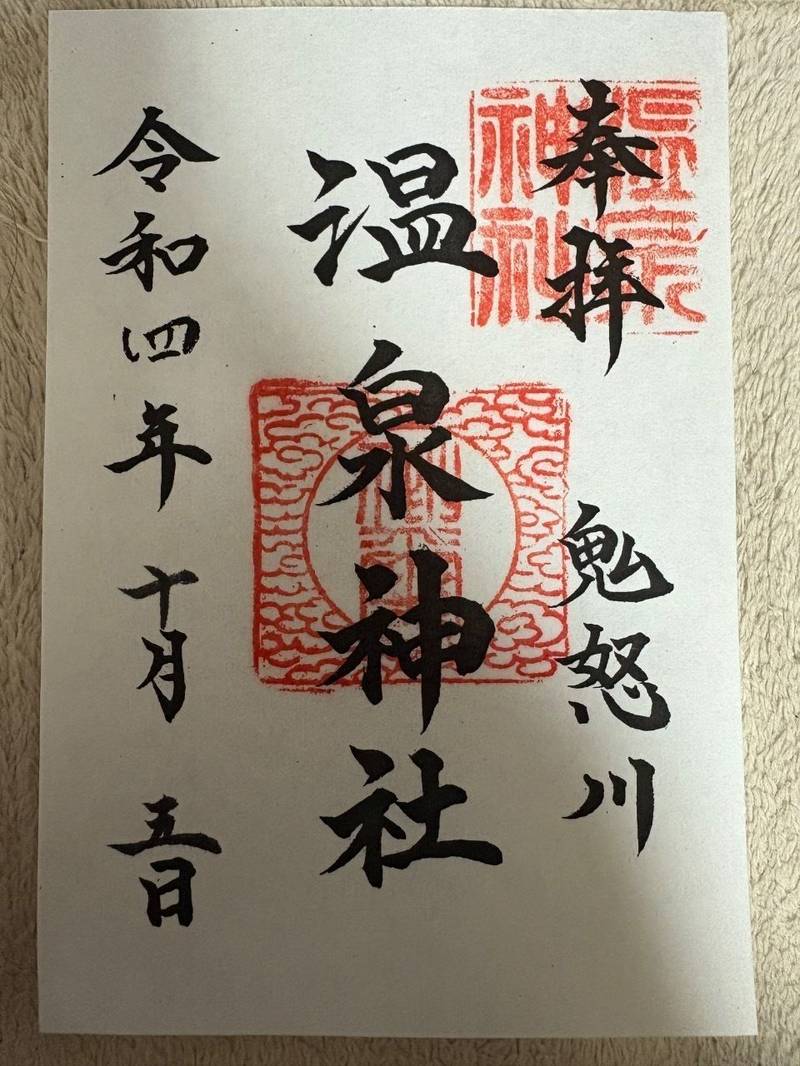 奉拝
鬼怒川
温泉神社
令和四年十月五日
温泉神社